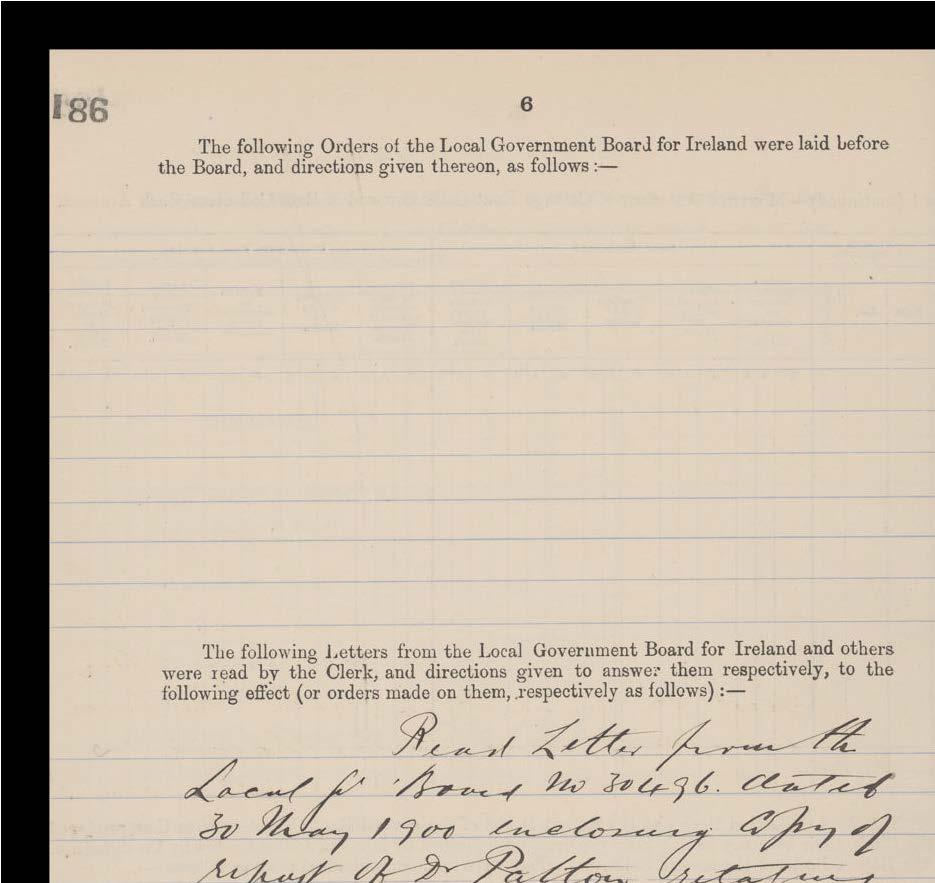 186
6
The following Orders of the Local Government Board for Ireland were laid before
the Board, and directions given thereon, as follows :—
The following Letters from the Local Government Board for Ireland and others
were read by the Clerk, and directions given to answer them respectively, to the
following effect (or orders made on them, respectively as follows) :—
Read Letter from the
Local Board No 30496. dated
30 May 1900 enclosing Copy of
report of Dr Patton relating